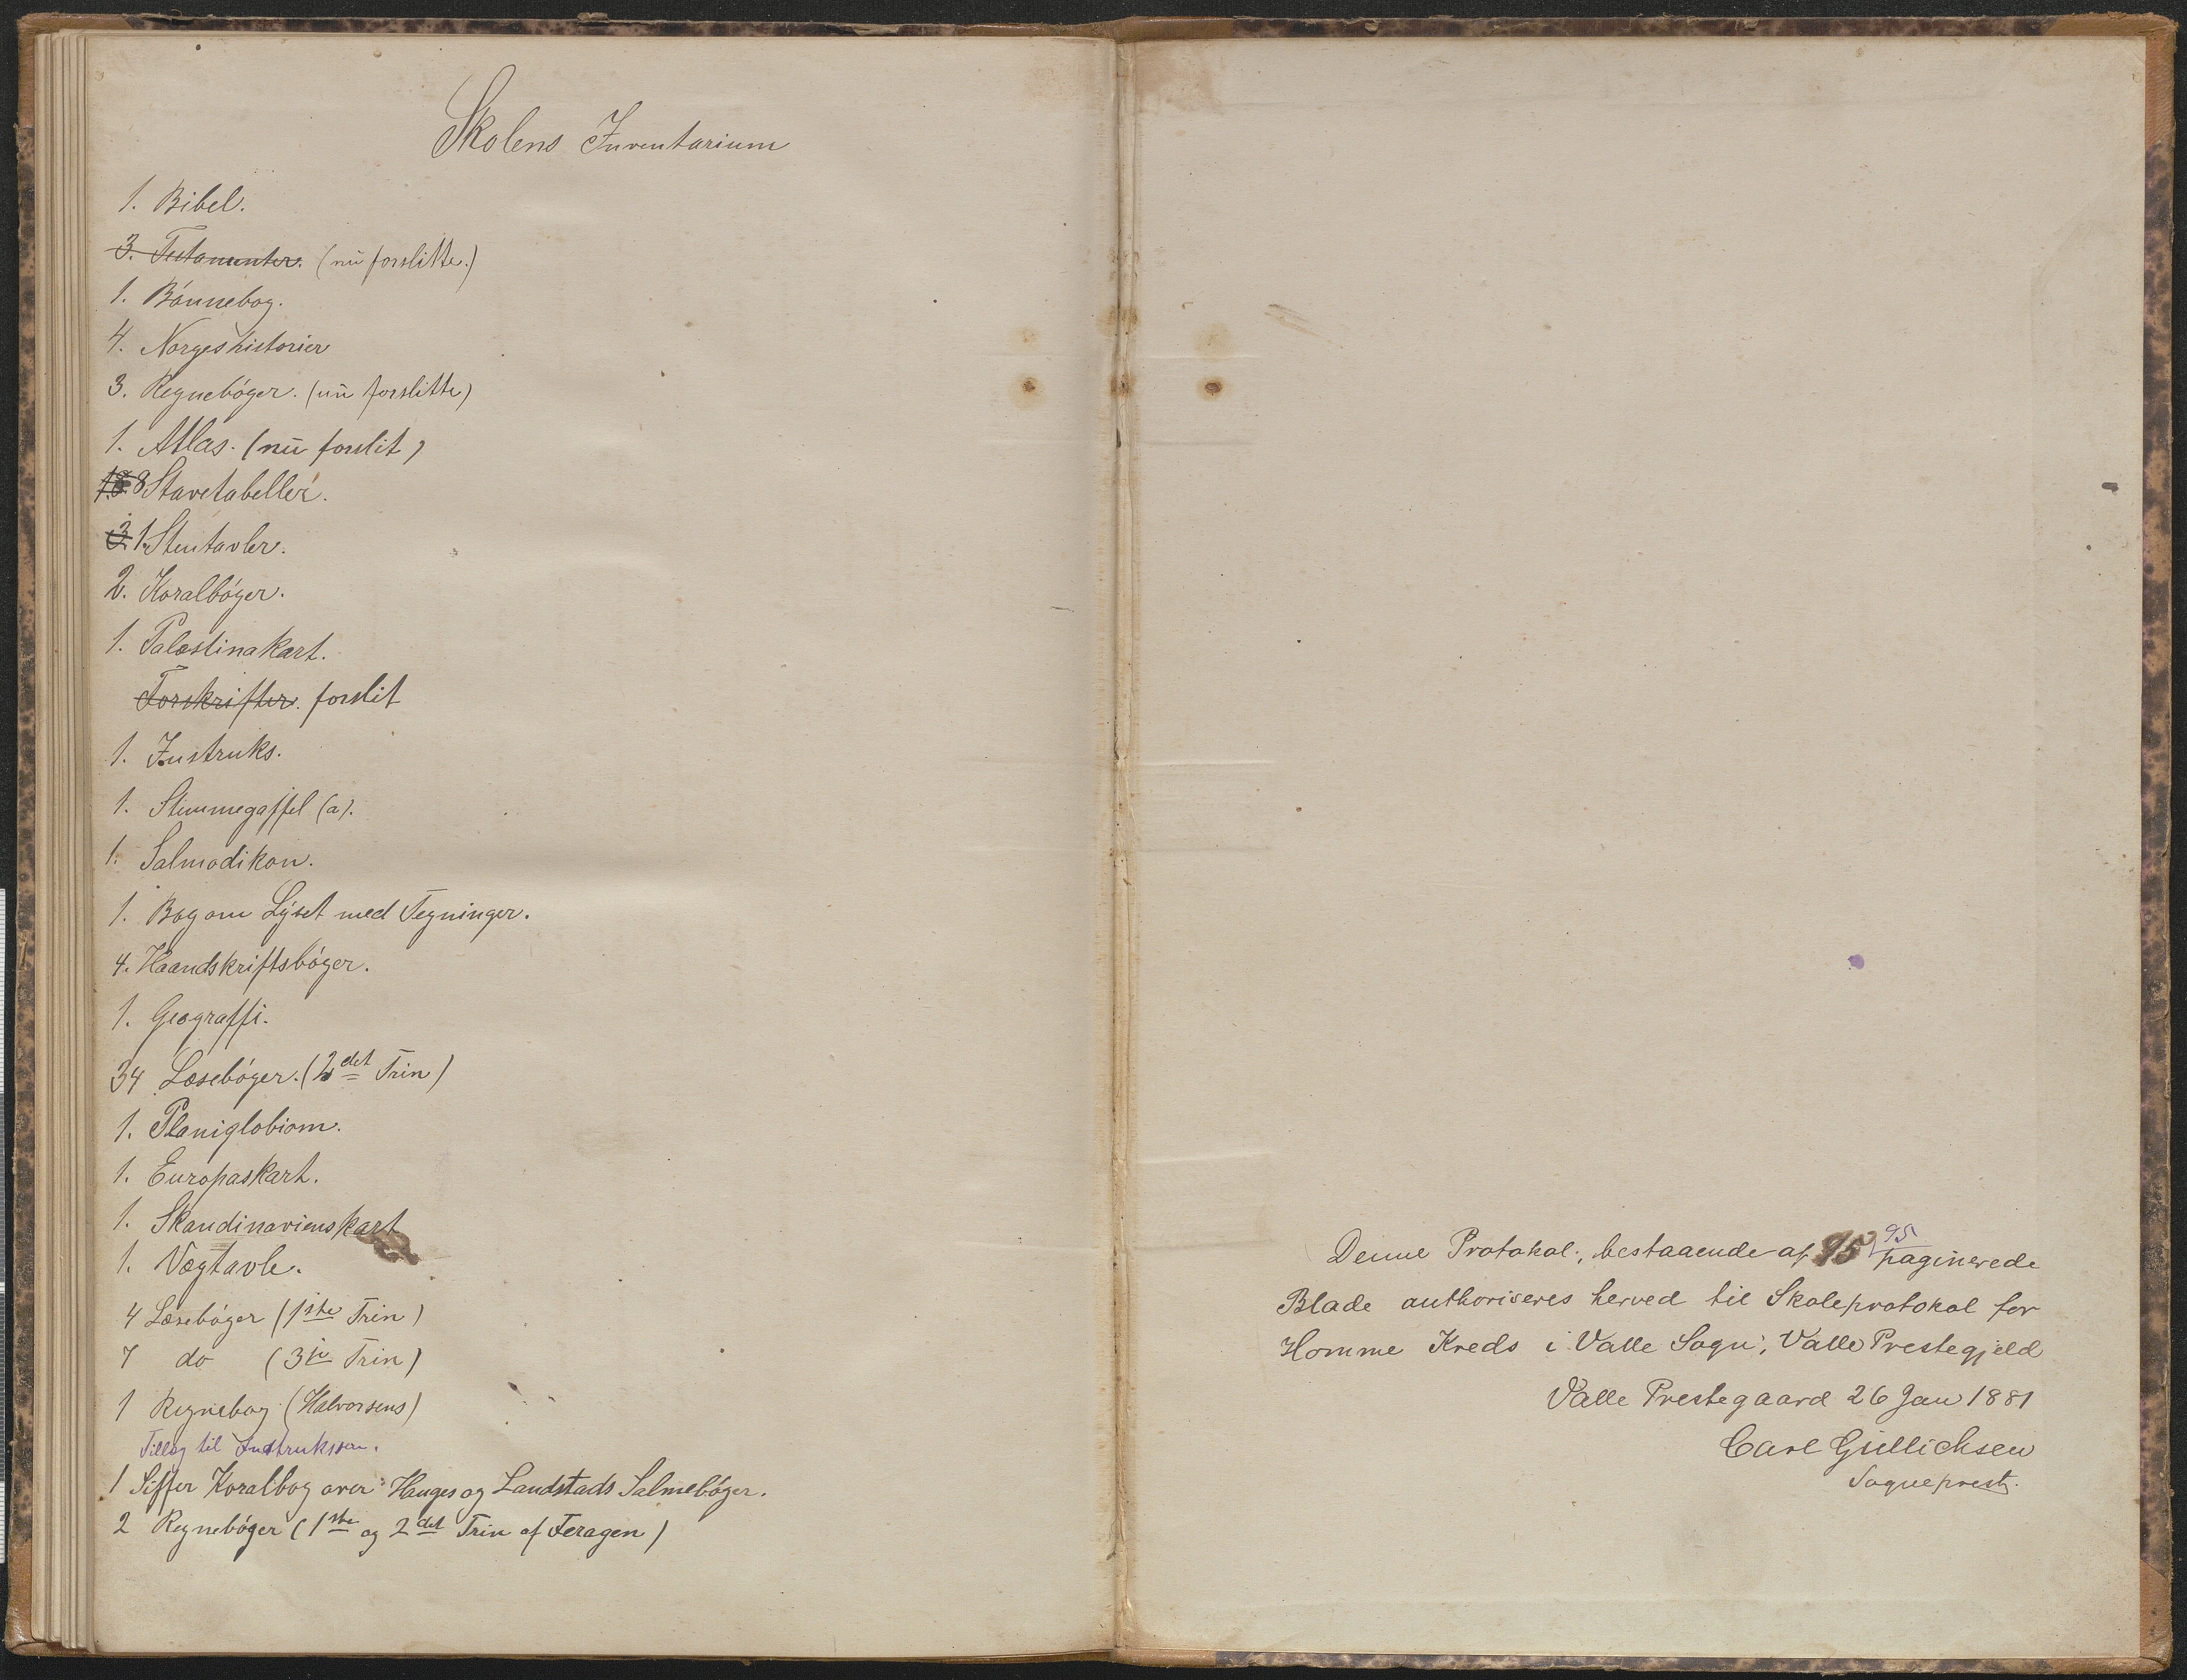 Skolens Inventarium
1. Bibel.
3. Testamenter. (nu forslitte.)
1. Bónnebog.
4. Norgeshistorier
3. Regnebóger. (nu forslitte)
1. Atlas. (nu forslit)
8 Stavetabeller.
3. 1. Stentavler.
2. Koralbóger.
1. Palæstinakart.
Forskrifter. forslit
1. Instruks.
1. Stemmegaffel (a).
1. Salmodikon.
1. Bog om Lyset med Tegninger.
4. Haandskriftsbóger.
1. Geograffi.
34 Læsebóger. (2det Trin)
1. Planiglobiom.
1. Europaskart.
1. Skandinavienskart
1. Vægtavle.
4 Læsebóger (1ste Trin)
7 do (3je Trin)
1 Regnebog (Halvorsens)
Tillæg til Instruksen.
1 Siffer Koralbog over Hauges og Landstads Salmebóger.
2 Regnebóger (1ste og 2det Trin af Feragen)
Denne Protokol, bestaaende af 95 95 paginerede
Blade authoriseres herved til Skoleprotokol for
Homme Kreds i Valle Sogn, Valle Prestegjeld
Valle Prestegaard 26 Jan 1881
Carl Gullichsen
Sogneprest.